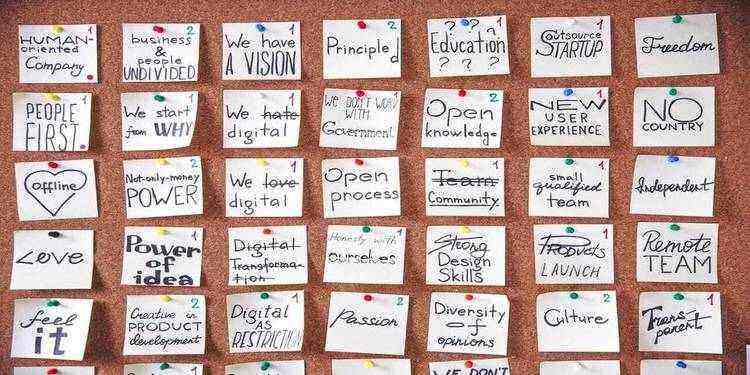 HUMAN- 1
oriented
Company.
business 2
&
people
UNDIVIDED
We have 1
A VISION
Principled 2
? ? ?
Education 1
? ? ?
Outsource 1
STARTUP
Freedom
PEOPLE 1
FIRST.
We start 1
from WHY
We hate 1
digital
We DON'T WORK 1
WITH
Government
Open 2
knowledge
NEW 1
USER
EXPERIENCE
NO
COUNTRY
offline
Not-only-money 2
POWER
We love 1
digital
Open 1
process
Team 1
Community
small 1
qualified
team
Independent
Love
Power 2
of
idea
Digital 1
Transforma-
tion
Honesty with 1
ourselves
Strong
Design
Skills
Products 1
LAUNCH
Remote
TEAM
feel
it
Creative in 2
PRODUCT
development
Digital 1
AS
RESTRICTION
Passion 2
Diversity
of
opinions
Culture 2
Trans 1
parent
WE DON'T